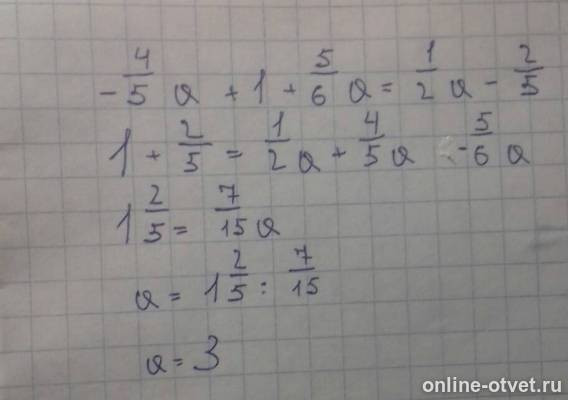 -4/5 a + 1 + 5/6 a = 1/2 a - 2/5
1 + 2/5 = 1/2 a + 4/5 a - 5/6 a
1 2/5 = 7/15 a
a = 1 2/5 : 7/15
a = 3
online-otvet.ru